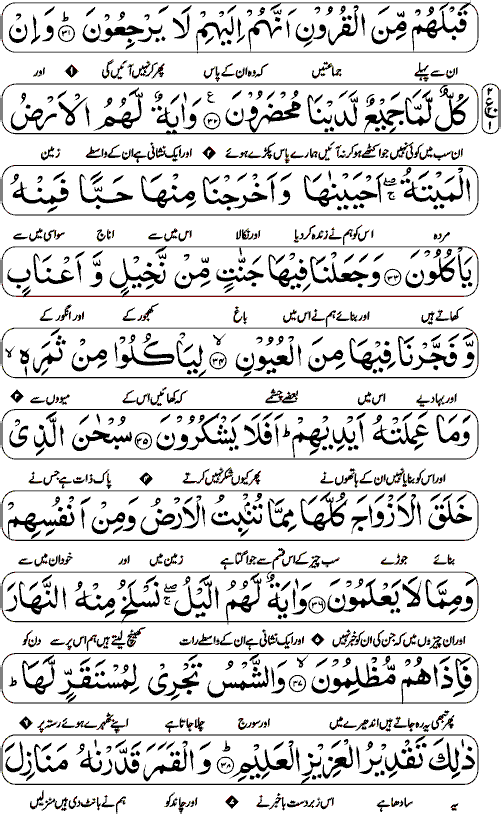 قَبْلَهُمْ مِّنَ الْقُرُوْنِ اَنَّهُمْ اِلَيْهِمْ لَا يَرْجِعُوْنَ ۳۱ وَاِنْ
ان سے پہلے جماعتیں کہ وہ ان کے پاس پھر کر نہیں آئیں گی اور
كُلٌّ لَّمَّا جَمِيْعٌ لَّدَيْنَا مُحْضَرُوْنَ ۳۲ وَاٰيَةٌ لَّهُمُ الْاَرْضُ
ان سب میں کوئی نہیں جو اکٹھے ہو کر نہ آئیں ہمارے پاس پکڑے ہوئے اور ایک نشانی ہے ان کے واسطے زمین
الْمَيْتَةُ اَحْيَيْنٰهَا وَاَخْرَجْنَا مِنْهَا حَبًّا فَمِنْهُ
مردہ اس کو ہم نے زندہ کر دیا اور نکالا اس میں سے اناج سو اسی میں سے
يَاْكُلُوْنَ ۳۳ وَجَعَلْنَا فِيْهَا جَنّٰتٍ مِّنْ نَّخِيْلٍ وَّ اَعْنَابٍ
کھاتے ہیں اور بنائے ہم نے اس میں باغ کھجور کے اور انگور کے
وَّ فَجَّرْنَا فِيْهَا مِنَ الْعُيُوْنِ ۳۴ لِيَاْكُلُوْا مِنْ ثَمَرِهٖ
اور بہا دیے اس میں بعضے چشمے کہ کھائیں اس کے میووں سے
وَمَا عَمِلَتْهُ اَيْدِيْهِمْ اَفَلَا يَشْكُرُوْنَ ۳۵ سُبْحٰنَ الَّذِيْ
اور اس کو بنایا نہیں ان کے ہاتھوں نے پھر کیوں شکر نہیں کرتے پاک ذات ہے جس نے
خَلَقَ الْاَزْوَاجَ كُلَّهَا مِمَّا تُنْۢبِتُ الْاَرْضُ وَمِنْ اَنْفُسِهِمْ
بنائے جوڑے سب چیز کے اس قسم سے جو اگتا ہے زمین میں اور خود ان میں سے
وَمِمَّا لَا يَعْلَمُوْنَ ۳۶ وَاٰيَةٌ لَّهُمُ الَّيْلُ نَسْلَخُ مِنْهُ النَّهَارَ
اور ان چیزوں میں کہ جن کی ان کو خبر نہیں اور ایک نشانی ہے ان کے واسطے رات کھینچ لیتے ہیں ہم اس پر سے دن کو
فَاِذَا هُمْ مُّظْلِمُوْنَ ۳۷ وَالشَّمْسُ تَجْرِيْ لِمُسْتَقَرٍّ لَّهَا
پھر تبھی یہ رہ جاتے ہیں اندھیرے میں اور سورج چلا جاتا ہے اپنے ٹھہرے ہوئے رستہ پر
ذٰلِكَ تَقْدِيْرُ الْعَزِيْزِ الْعَلِيْمِ ۳۸ وَالْقَمَرَ قَدَّرْنٰهُ مَنَازِلَ
یہ سادھا ہے اس زبردست باخبر نے اور چاند کو ہم نے بانٹ دی ہیں منزلیں